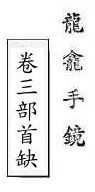 龍龕手鏡
卷三部首缺